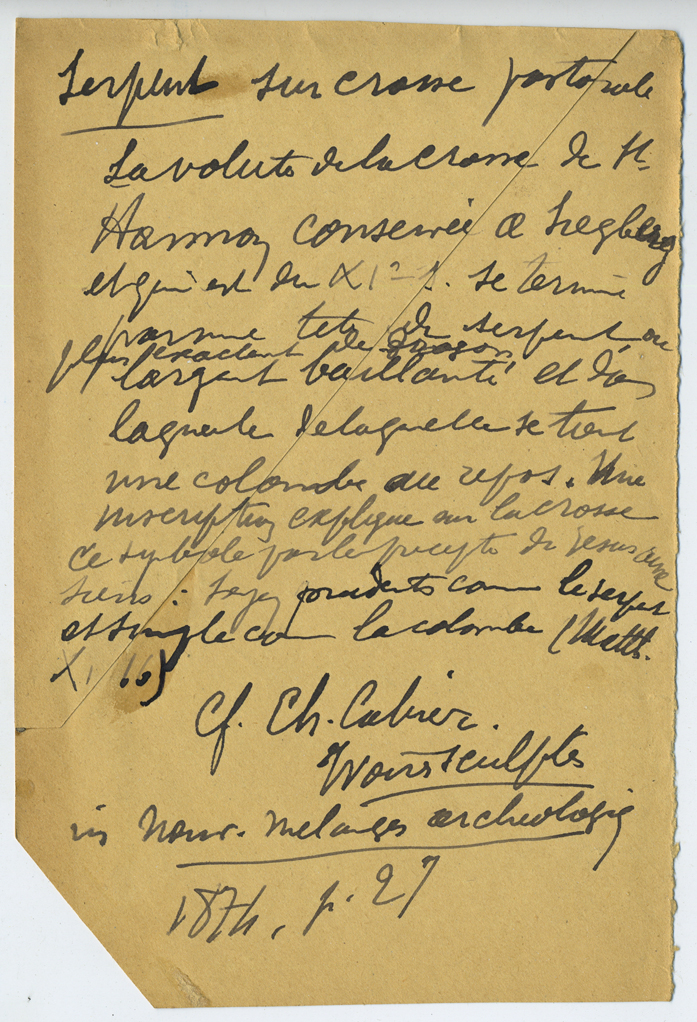 Serpent sur crosse pastorale
La volute de la crosse de St.
Hannon conservée a Siegberg
et qui est du XIe s. se termine
par une tete de serpent ou
plus exactant de dragon
largent baillante et dans
la gueule de laquelle se tient
une colombe au repos. Une
inscription explique sur la crosse
ce symbole par le precepte de Jesus aux
siens : Soyez prudents comm le serpent
et simple com la colombe (Matth.
X, 16)
Cf. Ch. Cahier.
Ivoires sculptés
in Nouv. melanges archeologiq
1874, p. 27